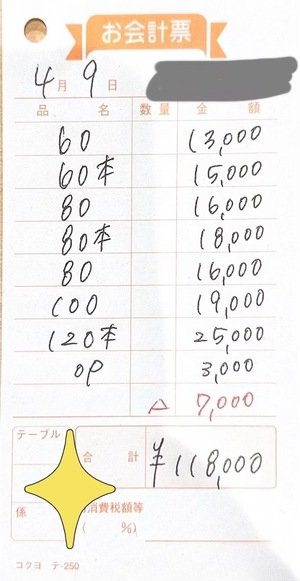 お会計票
4月9日
品名 数量 金額
60 13,000
60本 15,000
80 16,000
80本 18,000
80 16,000
100 19,000
120本 25,000
OP 3,000
△ 7,000
テーブル 合計 ¥118,000
係 消費税額等
( %)
コクヨ テ-250